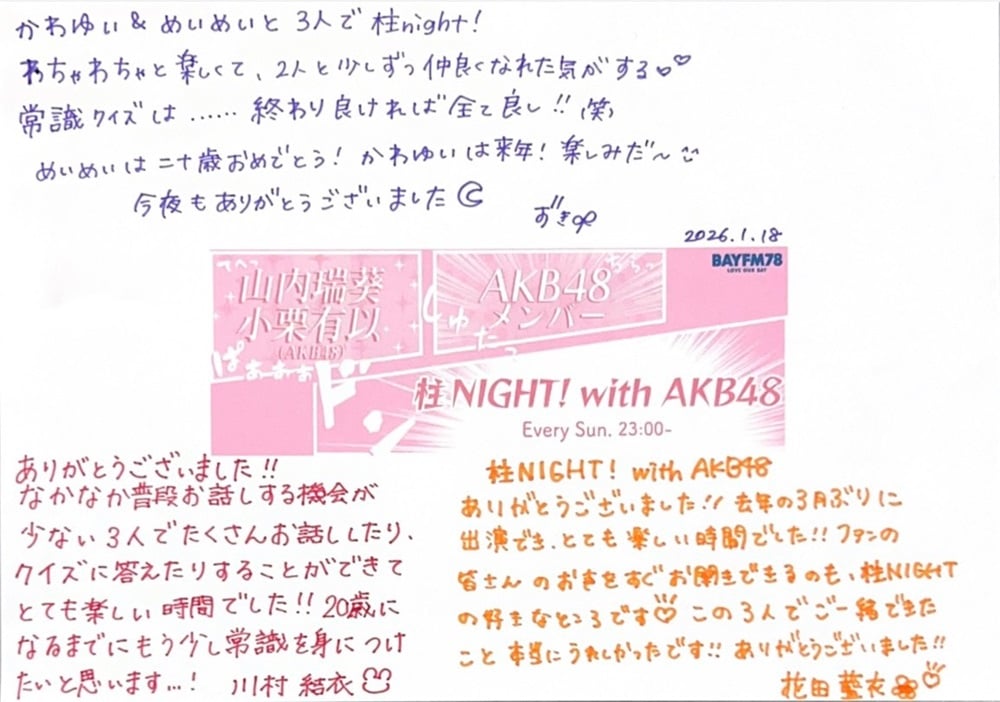 かわゆい & めいめいと 3人で 柱night!
わちゃわちゃと楽しくて、2人と少しずつ仲良くなれた気がする♡♡
常識クイズは……終わり良ければ全て良し!!(笑)
めいめいは二十歳おめでとう! かわゆいは来年! 楽しみだ〜
今夜もありがとうございました
ずき
2026.1.18
BAYFM78
LOVE OUR BAY
てへっ
山内瑞葵
小栗有以
(AKB48)
ぱぁぁぁぁ
AKB48
メンバー
しゅたっ
ド
柱NIGHT! with AKB48
Every Sun. 23:00-
ありがとうございました!!
なかなか普段お話しする機会が
少ない3人でたくさんお話ししたり、
クイズに答えたりすることができて
とても楽しい時間でした!! 20歳に
なるまでにもう少し常識を身につけ
たいと思います...! 川村 結衣
柱NIGHT! with AKB48
ありがとうございました!! 去年の3月ぶりに
出演でき、とても楽しい時間でした!! ファンの
皆さんのお声をすぐお聞きできるのも、柱NIGHT
の好きなところです♡ この3人でご一緒できた
こと 本当にうれしかったです!! ありがとうございました!!
花田 藍衣